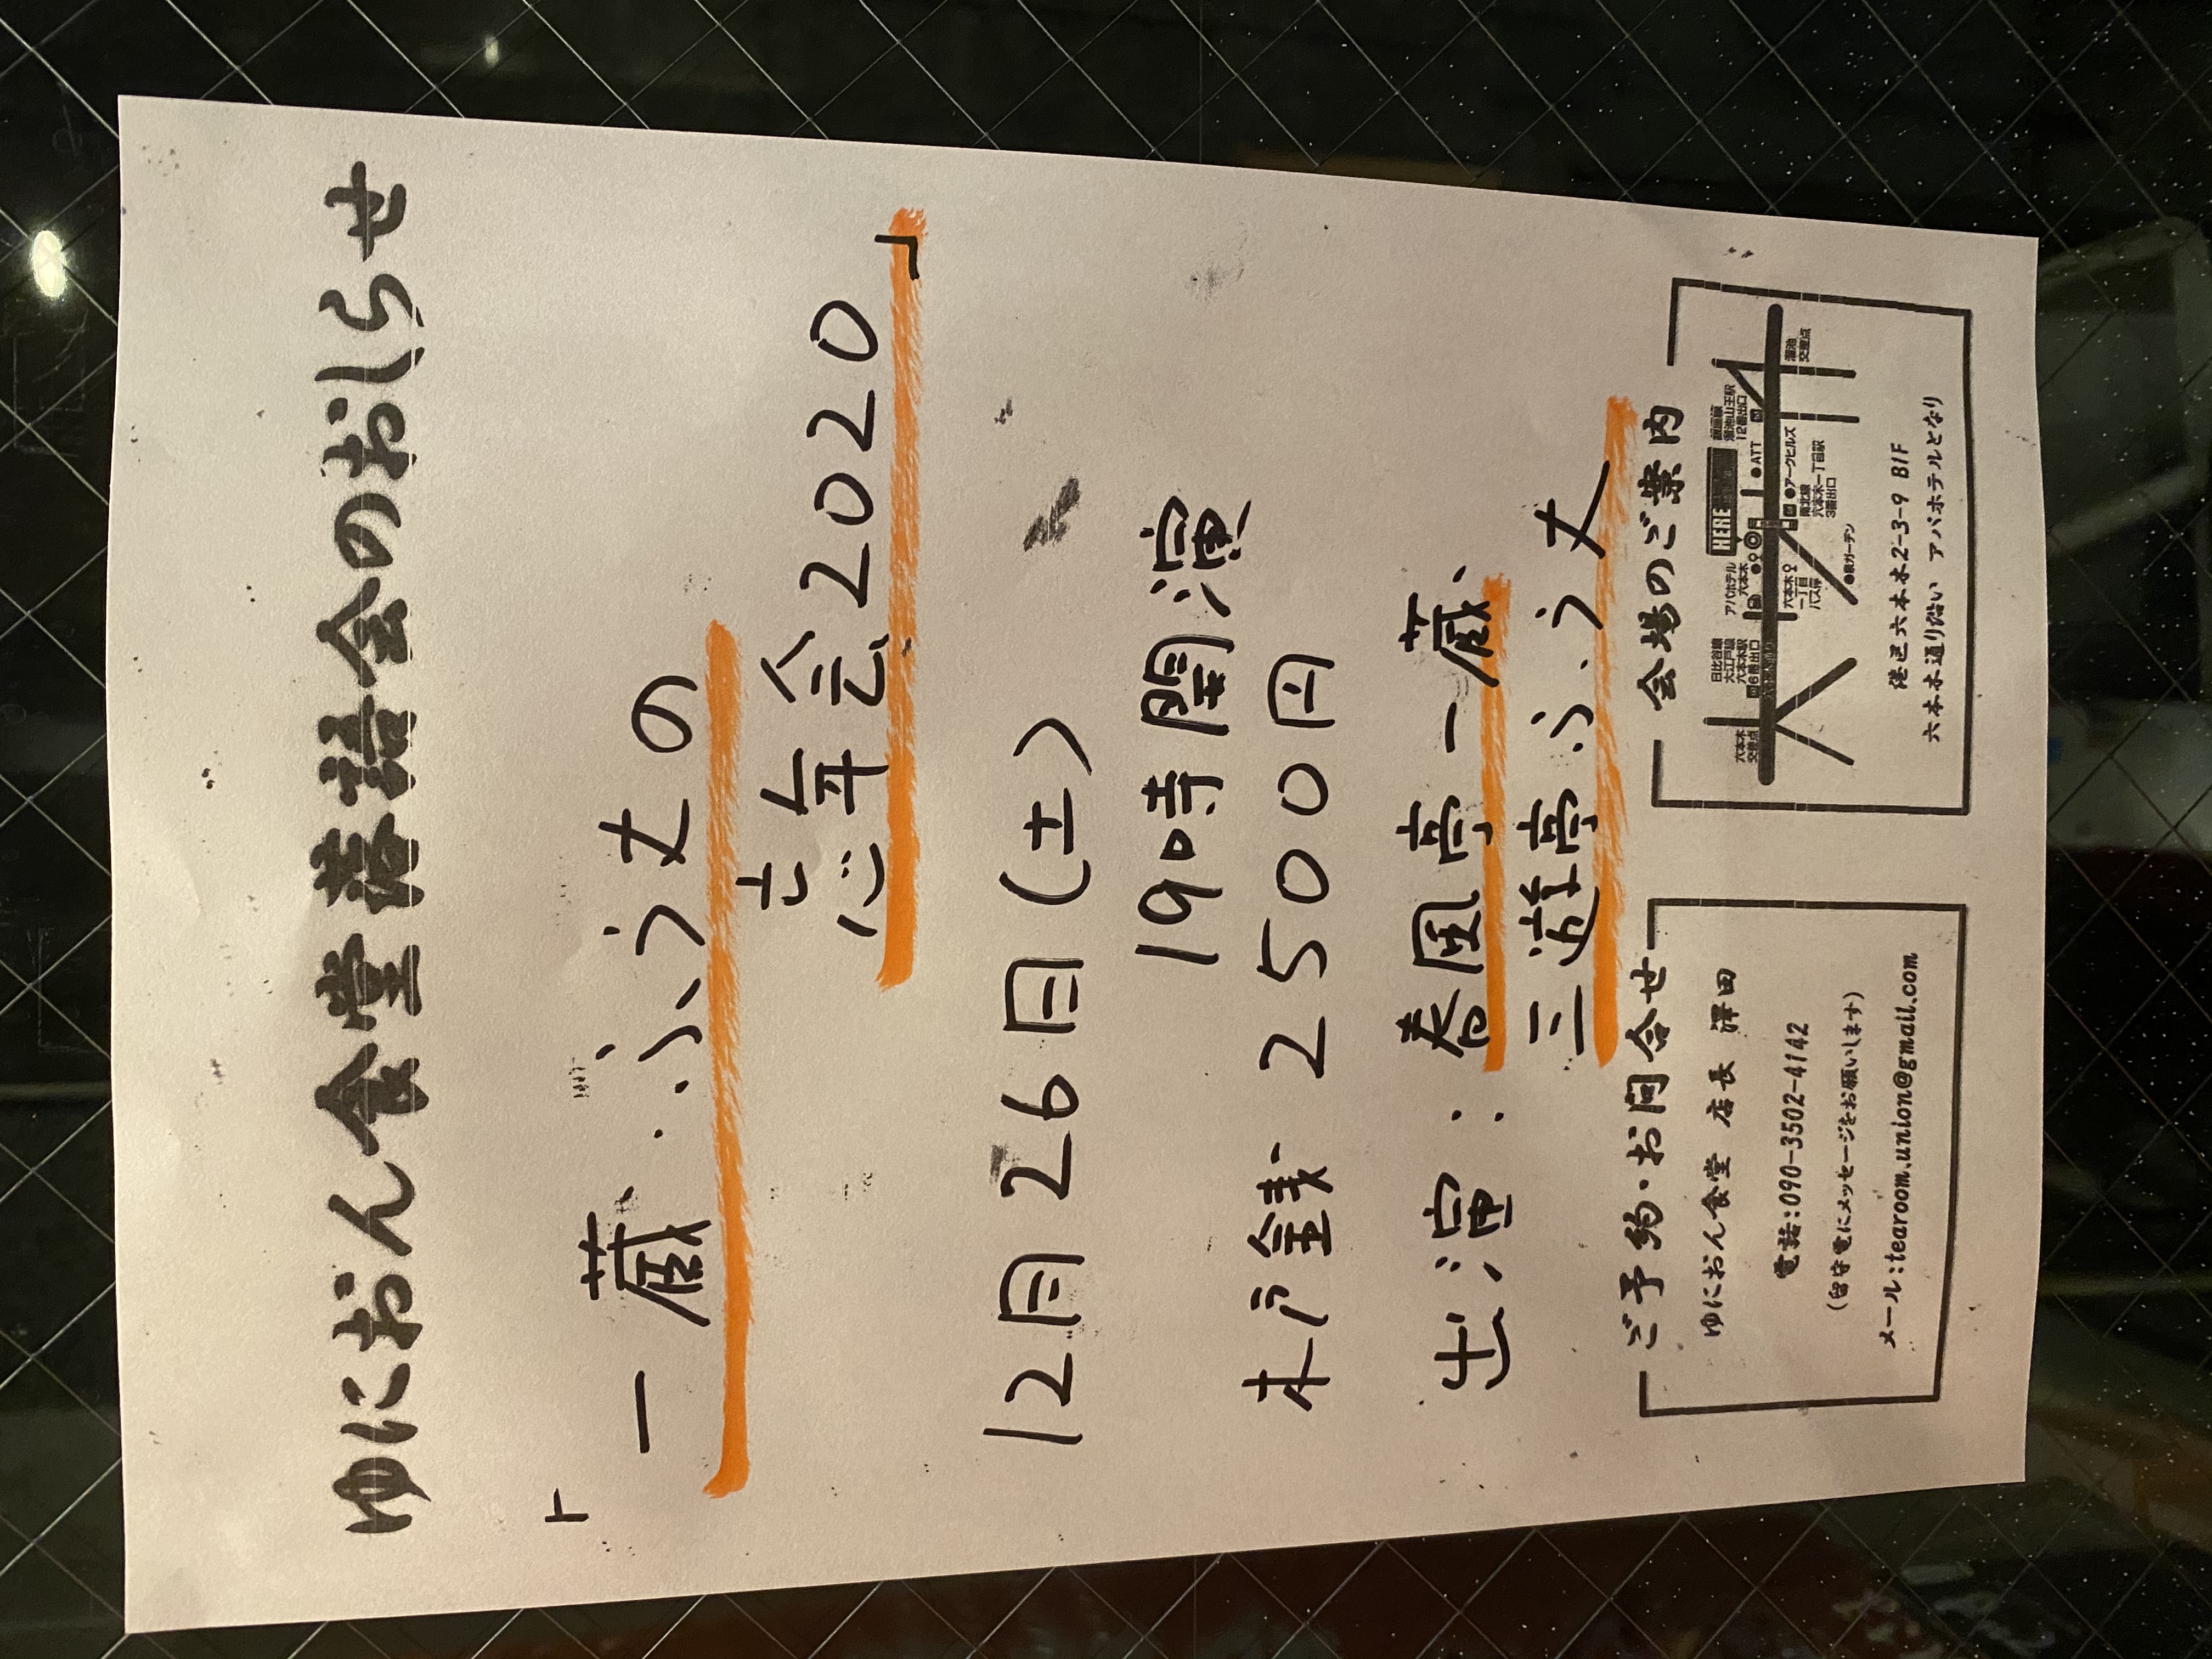 ゆにおん食堂 落語会のおしらせ
「一蔵、ふう丈の
忘年会2020」
12月26日(土)
19時開演
木戸銭 2500円
出演:春風亭一蔵、
三遊亭ふう丈
ご予約・お問合せ
ゆにおん食堂 店長 澤田
電話:090-3502-4142
(留守電にメッセージをお願いします)
メール:tearoom.union@gmail.com
会場のご案内
六本木
交差点
日比谷線
大江戸線
六本木駅
6番出口
アパホテル
六本木
HERE
●ATT
銀座線
溜池山王駅
12番出口
溜池
交差点
六本木
一丁目
バス停
●アークヒルズ
南北線
六本木一丁目駅
3番出口
●泉ガーデン
港区六本木2-3-9 B1F
六本木通り沿い アパホテルとなり